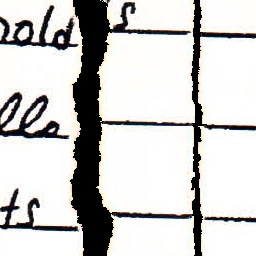 old s
lla
ts